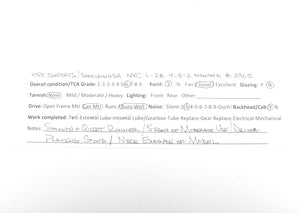 KEY IMPORTS/SAMHONGSA NYC L-2A 4-8-2 MOHAWK # 2905
Overall condition/TCA Grade: C-1-2-3-4-5-6-7-8-9 Paint: Y N Fair Good Excellent Glazing: Y N
Tarnish: None Mild / Moderate / Heavy Lighting: Front: Rear: Other:
Drive: Open Frame Mtr Can Mtr Runs Runs Well Noise: Silent-2-3-4-5-6-7-8-9-Ouch! Backhead/Cab Y N
Work completed: Test-External Lube-Internal Lube/Gearbox-Tube Replace-Gear Replace-Electrical-Mechanical
Notes: SMOOTH & QUIET RUNNER / SIGNS OF MODERATE USE / DRIVER
PLATING GOOD / NICE EXAMPLE OF MODEL